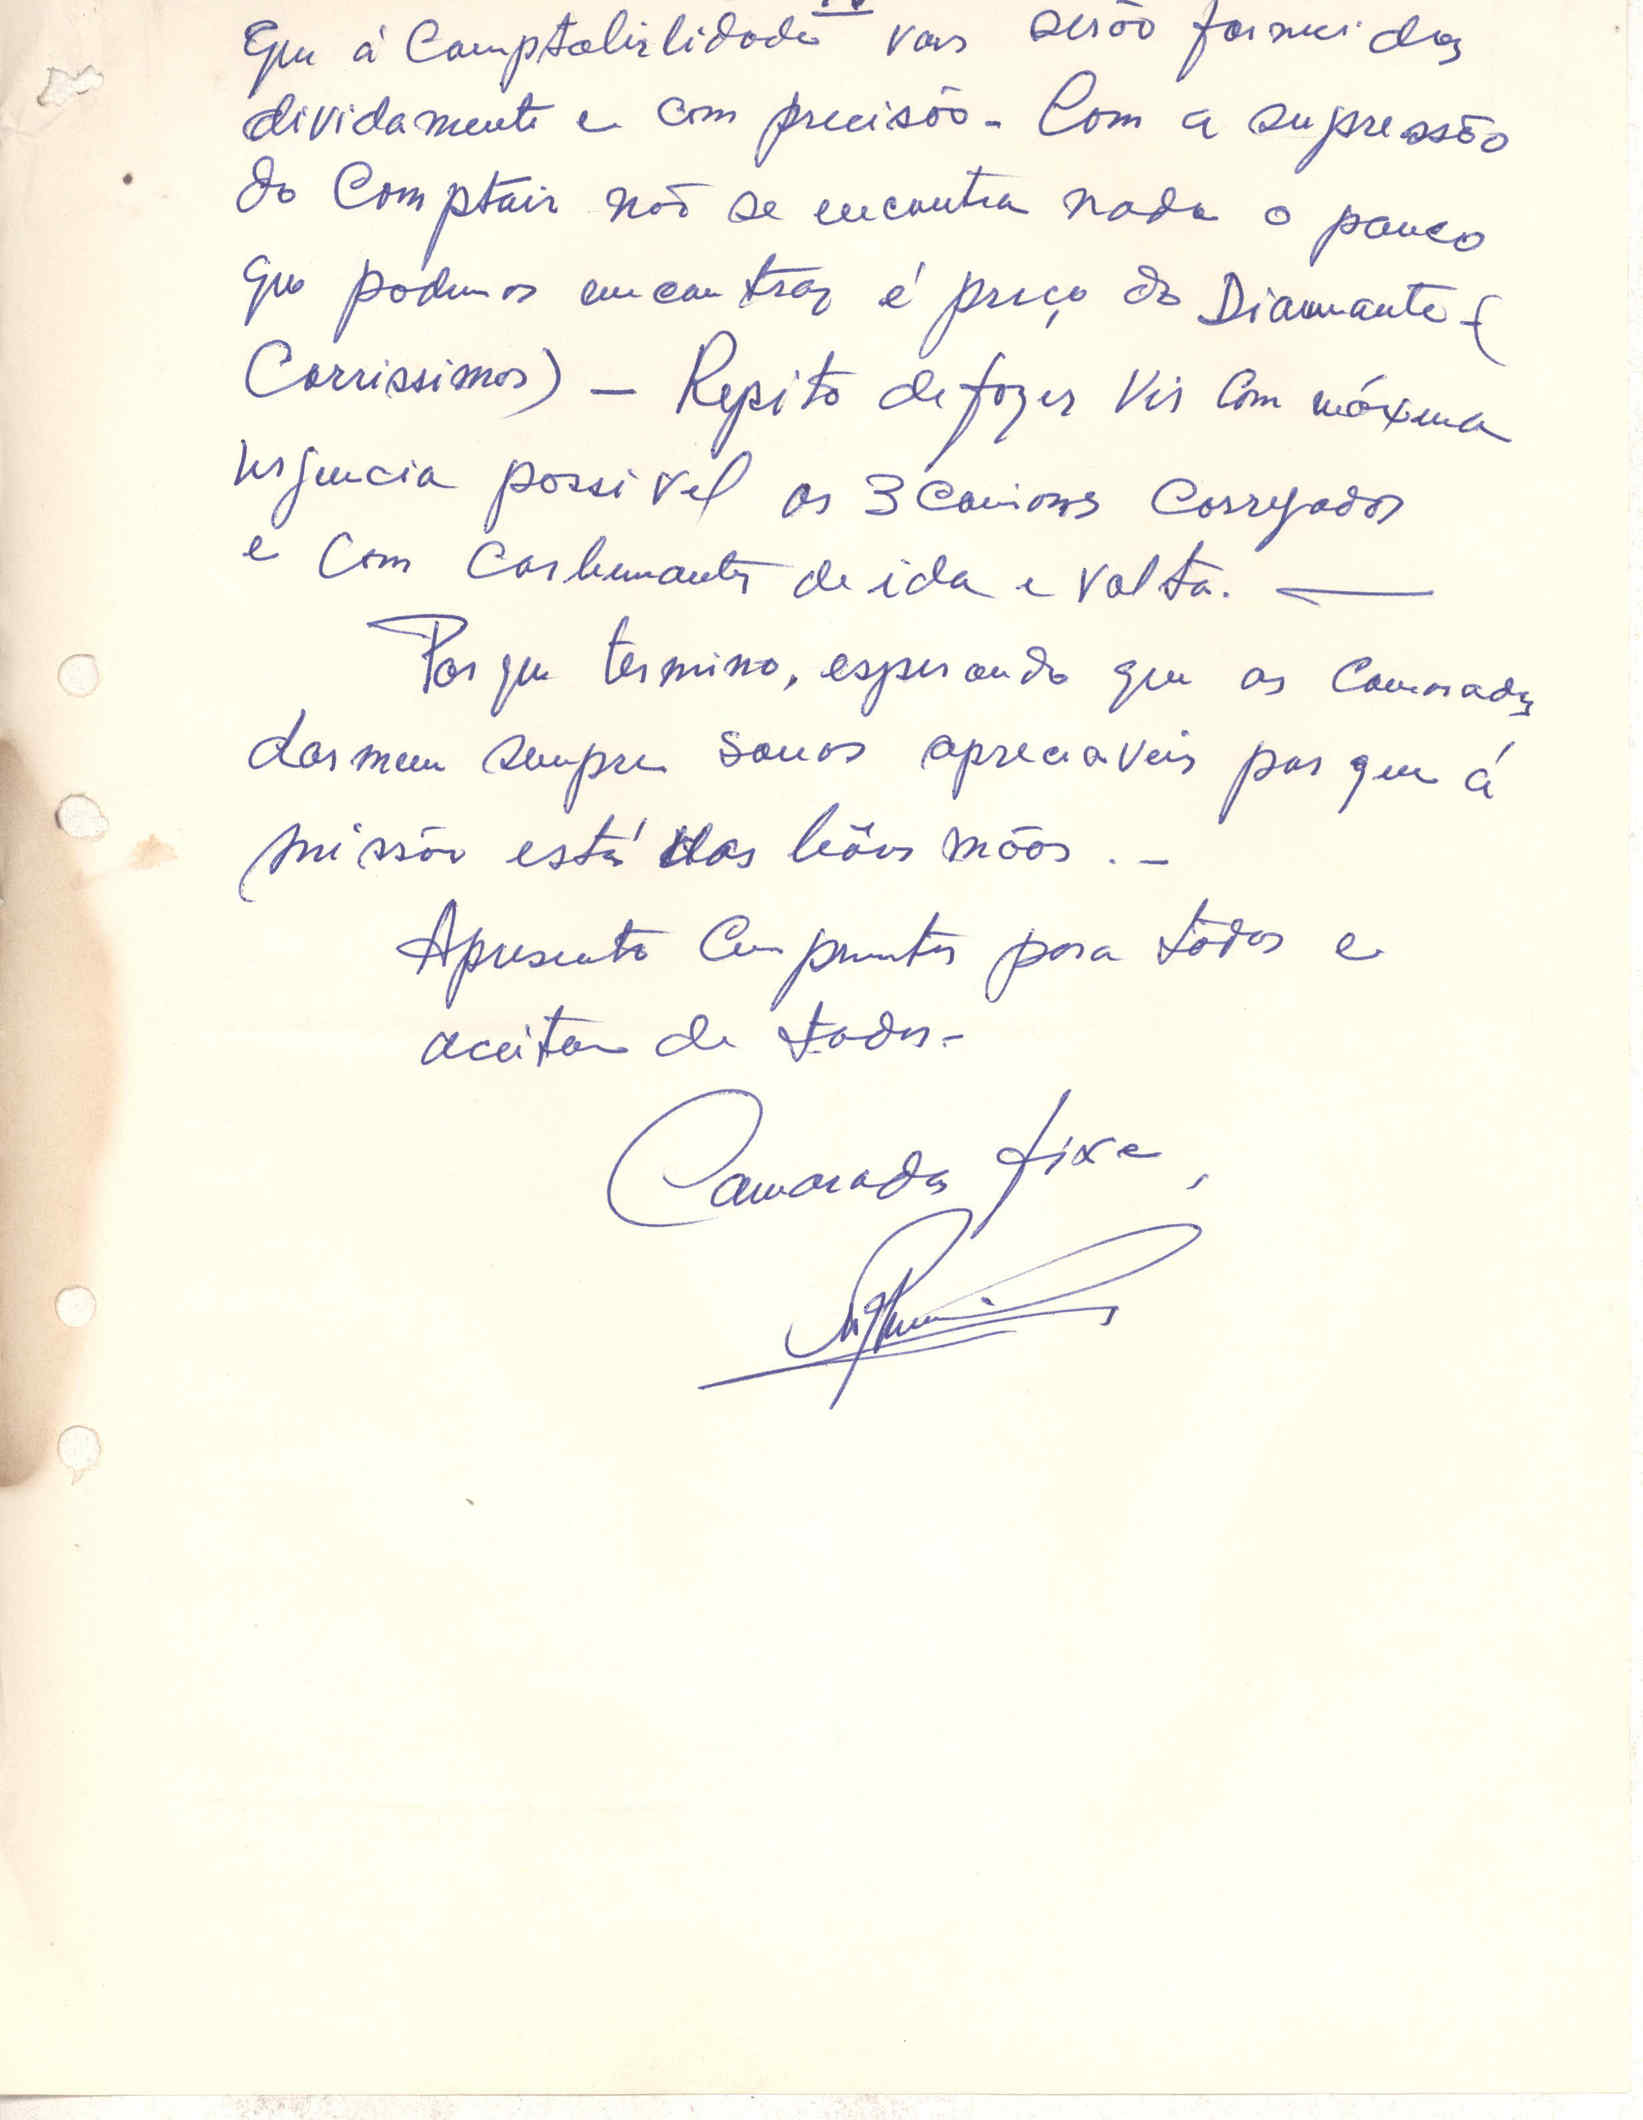 que á Comptabilidade vos serão fornecidos
dividamente e com precisão - Com a supressão
do Comptoir não se encontra nada o pouco
que podemos encontrar é preço do Diamante - (
Carrissimos) - Repito de fazer vir com máxima
urgencia possivel os 3 Camions Carregados
e com Carburantes de ida e volta. —
Por que termino, esperando que os Camaradas
dormem sempre sonos apreciaveis por que á
missão está nas bôas mãos . -
Apresento Cumprimentos para todos e
aceitem de todos -
Camarada fixe,